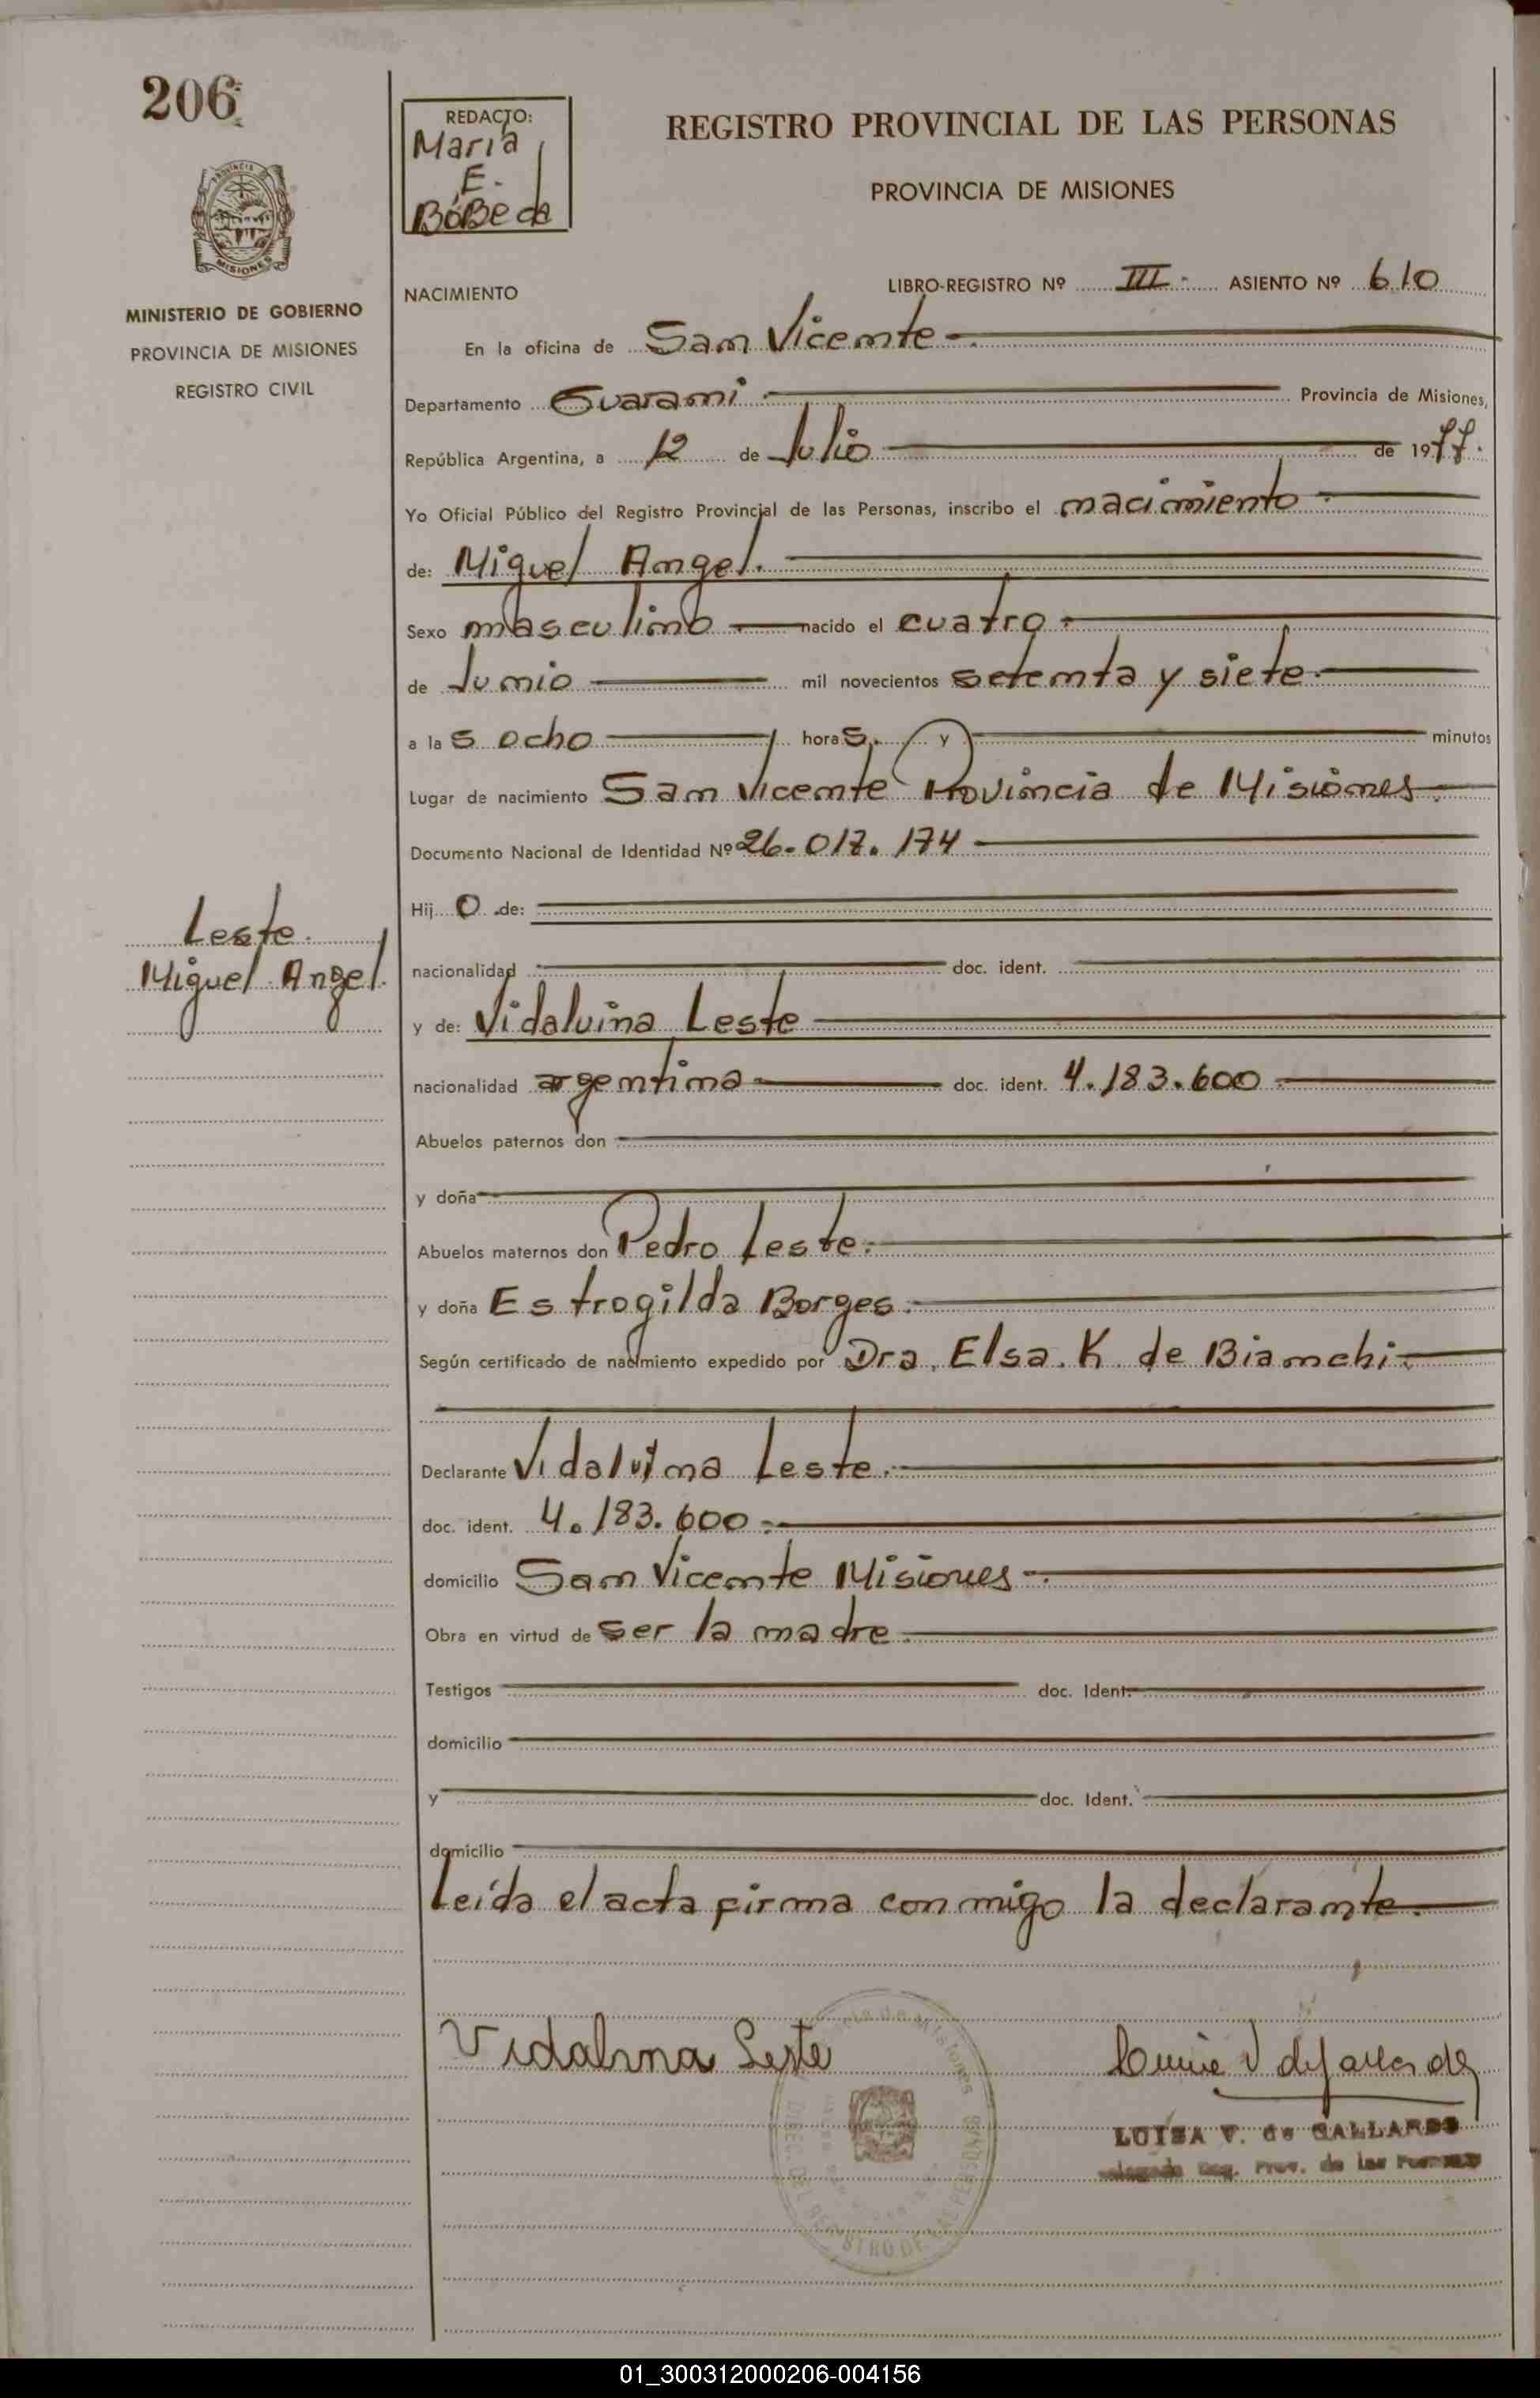 206
REDACTO:
Maria
E.
BóBeda
REGISTRO PROVINCIAL DE LAS PERSONAS
PROVINCIA DE MISIONES
MISIONES
MINISTERIO DE GOBIERNO
PROVINCIA DE MISIONES
REGISTRO CIVIL
NACIMIENTO
LIBRO-REGISTRO Nº III - ASIENTO Nº 610
En la oficina de San Vicente
Departamento Guarani Provincia de Misiones,
República Argentina, a 12 de Julio de 1977.
Yo Oficial Público del Registro Provincial de las Personas, inscribo el nacimiento
de: Miguel Angel.
Sexo masculino nacido el cuatro
de Junio mil novecientos setenta y siete
a las ocho horas. y minutos
Lugar de nacimiento San Vicente Provincia de Misiones
Documento Nacional de Identidad Nº 26.017.174
Hijo de:
Leste.
Miguel Angel.
nacionalidad doc. ident.
y de: Vidalvina Leste
nacionalidad argentina doc. ident. 4.183.600
Abuelos paternos don
y doña
Abuelos maternos don Pedro Leste.
y doña Estrogilda Borges.
Según certificado de nacimiento expedido por Dra. Elsa. K. de Bianchi
Declarante Vidalvina Leste.
doc. ident. 4.183.600
domicilio San Vicente Misiones
Obra en virtud de ser la madre
Testigos doc. Ident.
domicilio
y doc. Ident.
domicilio
Leída el acta firma conmigo la declarante.
Vidalvina Leste
LUISA V. de GALLARDO
Reg. Prov. de las Personas
01_300312000206-004156